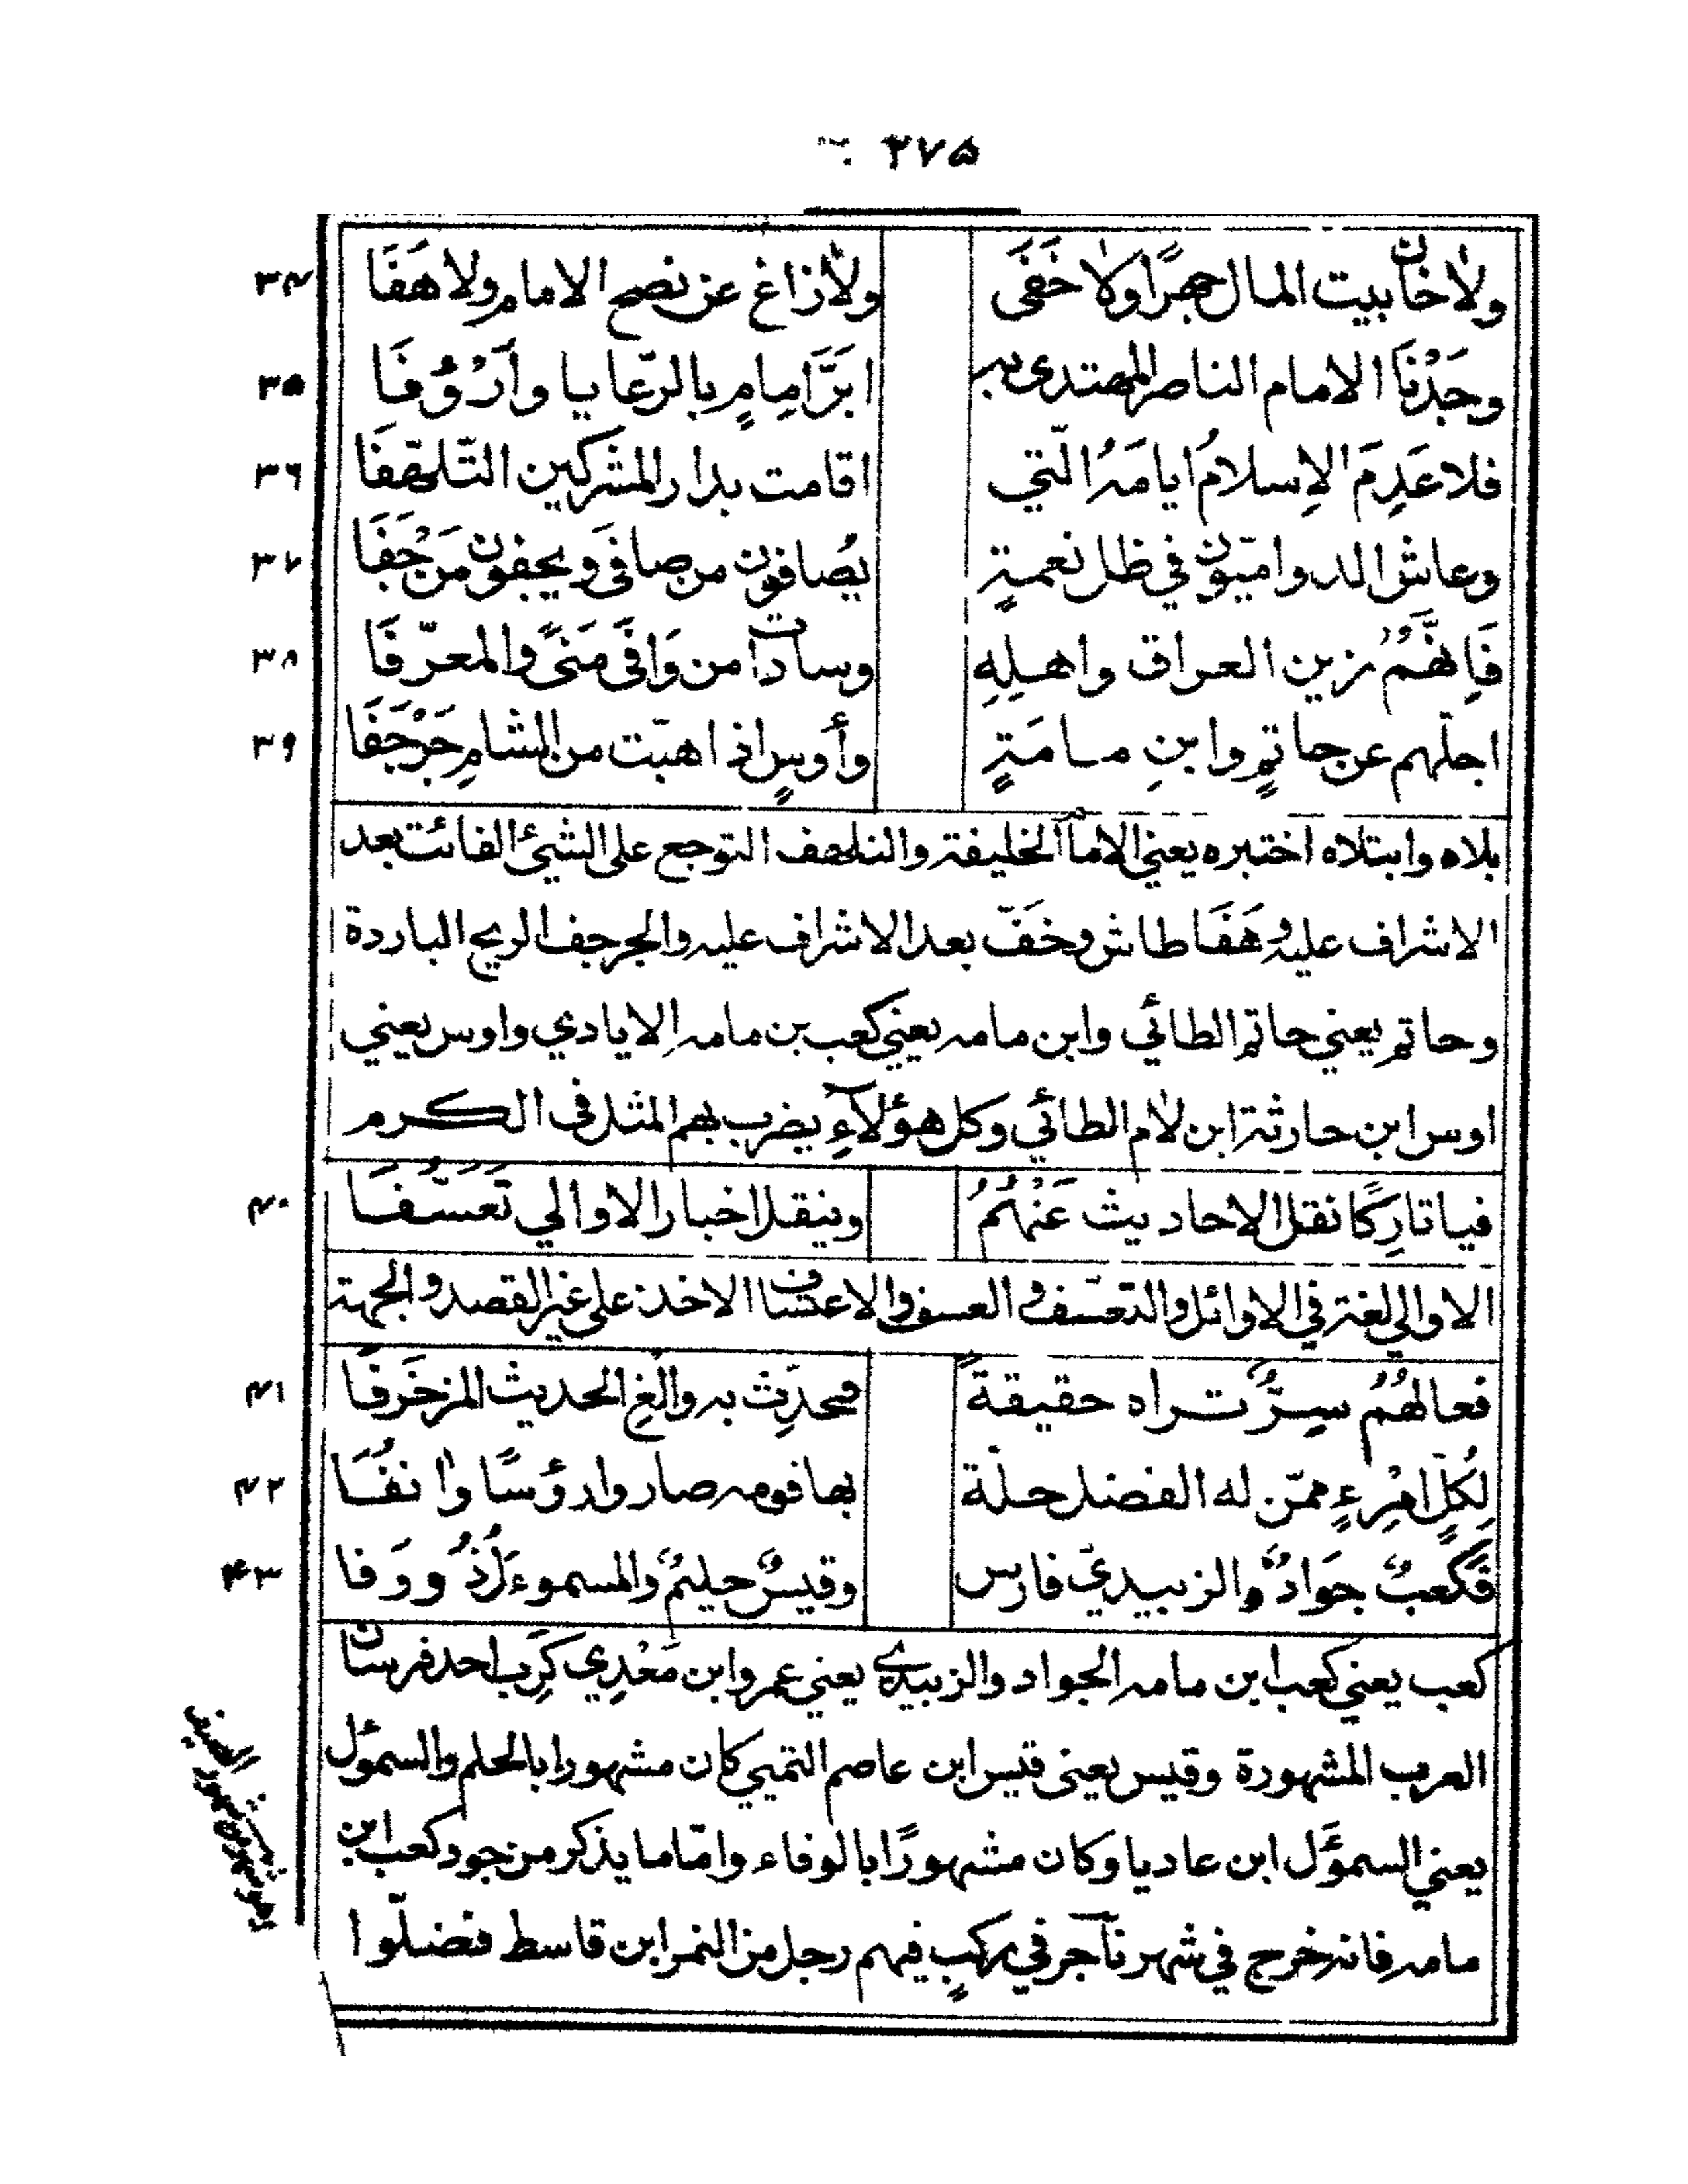 ٢٧٥
ولا خان بيت المال جهرًا ولا خَفَى ولا زاغ عن نصح الامام ولا هَفَا ٣٤
وجَدْنَا الامام الناصر المهتدى به ابَرَّ امامٍ بالرّعايا وأرْؤُفَا ٣٥
فلا عَدِمَ الإسلامُ ايامَهُ الّتي اقامت بدار المشركين التّلهّفَا ٣٦
وعاش الدواميّون في ظل نعمةٍ يُصافون من صافَى ويجفون مَن جَفَا ٣٧
فَإنّهُمُ زين العراق واهلِهِ وسادات من وَافَى مَنىً والمعرّفَا ٣٨
اجلّهم عن حاتمٍ وابنِ مامَةٍ وأوسٍ اذا هبّت من الشامِ حَرْجَفَا ٣٩
بلاه وابتلاه اختبره يعني الامام الخليفة والتلهف التوجع على الشيئ الفائت بعد
الاشراف عليه وهَفَا طاش وخَفّ بعد الاشراف عليه والحرجف الريح الباردة
وحاتم يعني حاتم الطائي وابن مامه يعني كعب بن مامه الايادي واوس يعني
اوس ابن حارثة ابن لأم الطائي وكل هؤلآءِ يضرب بهم المثل في الكرم
فيا تارِكًا نقل الاحاديث عَنْهُمُ وينقل اخبار الاوالي تَعَسُّفَا ٤٠
الاوالي لغة في الاوائل والتعسّف والعسف والاعتساف الاخذ على غير القصد والجهة
فعالهُمُ سِرٌّ تراه حقيقةً فحدِّث به والْغِ الحديث المزخرَفَا ٤١
لِكُلِّ امْرِءٍ ممّن له الفضل حلّة بها قومه صاروا رؤسًا وانفُفَا ٤٢
فَكَعبٌ جَوَادٌ والزبيديّ فارس وقيسٌ حليمٌ والسموءَلُ ذُو وَفا ٤٣
كعب يعني كعب ابن مامه الجواد والزبيدي يعني عمرو ابن مَعْدِي كَرِب احد فرسان
العرب المشهورة وقيس يعنى قيس ابن عاصم التميمي كان مشهورا بالحلم والسموَل
يعني السموَل ابن عاديا وكان مشهورًا بالوفاء وامّا ما يذكر من جود كعب ابن
مامه فانه خرج في شهر نآجر في ركبٍ فيهم رجل من النمر ابن قاسط فضلّوا